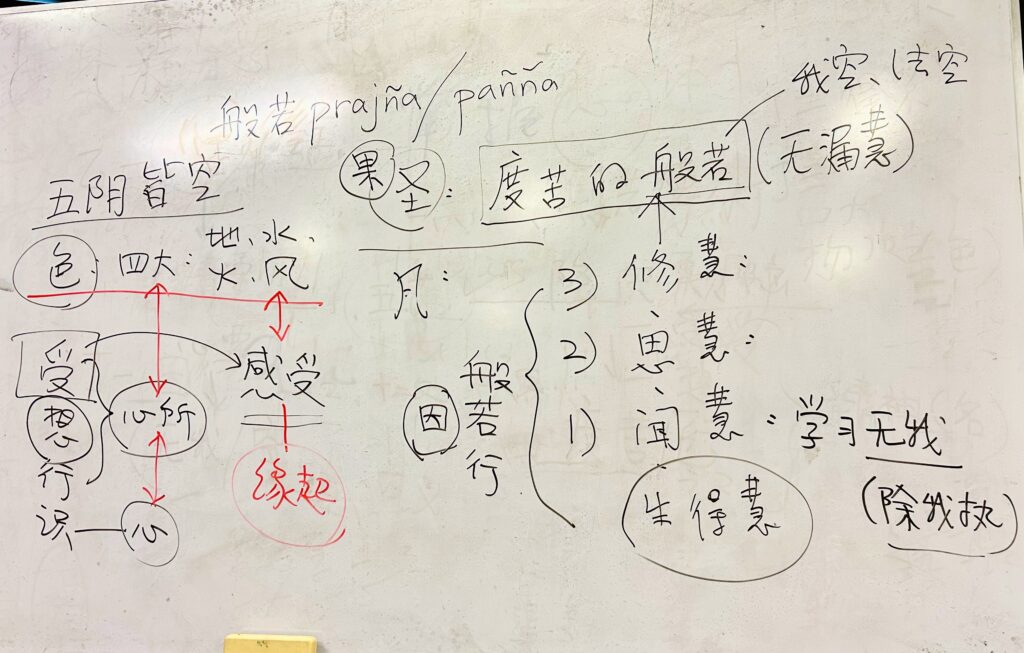 般若 prajña / pañña
我空、法空
果 圣: 度苦的般若 (无漏慧)
五阴皆空
色: 四大: 地、水、
火、风
受
想
行
识 — 心
心所
感受
缘起
凡:
因 般若行
3) 修慧:
2) 思慧:
1) 闻慧: 学习无我
生得慧 (除我执)